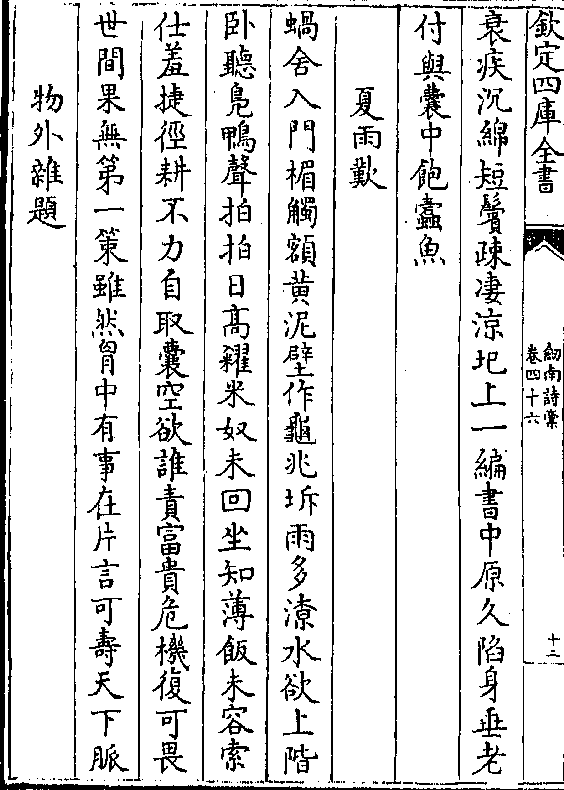 欽定四庫全書
劒南詩稾
卷四十六
十二
衰疾沉綿短鬢疎凄涼圯上一編書中原久陷身垂老
付與囊中飽蠧魚
夏雨歎
蝸舍入門楣觸額黄泥壁作龜兆坼雨多潦水欲上階
卧聽鳬鴨聲拍拍日髙糴米奴未回坐知薄飯未容索
仕羞捷徑耕不力自取囊空欲誰責富貴危機復可畏
世間果無第一策雖然胷中有事在片言可壽天下脈
物外雜題